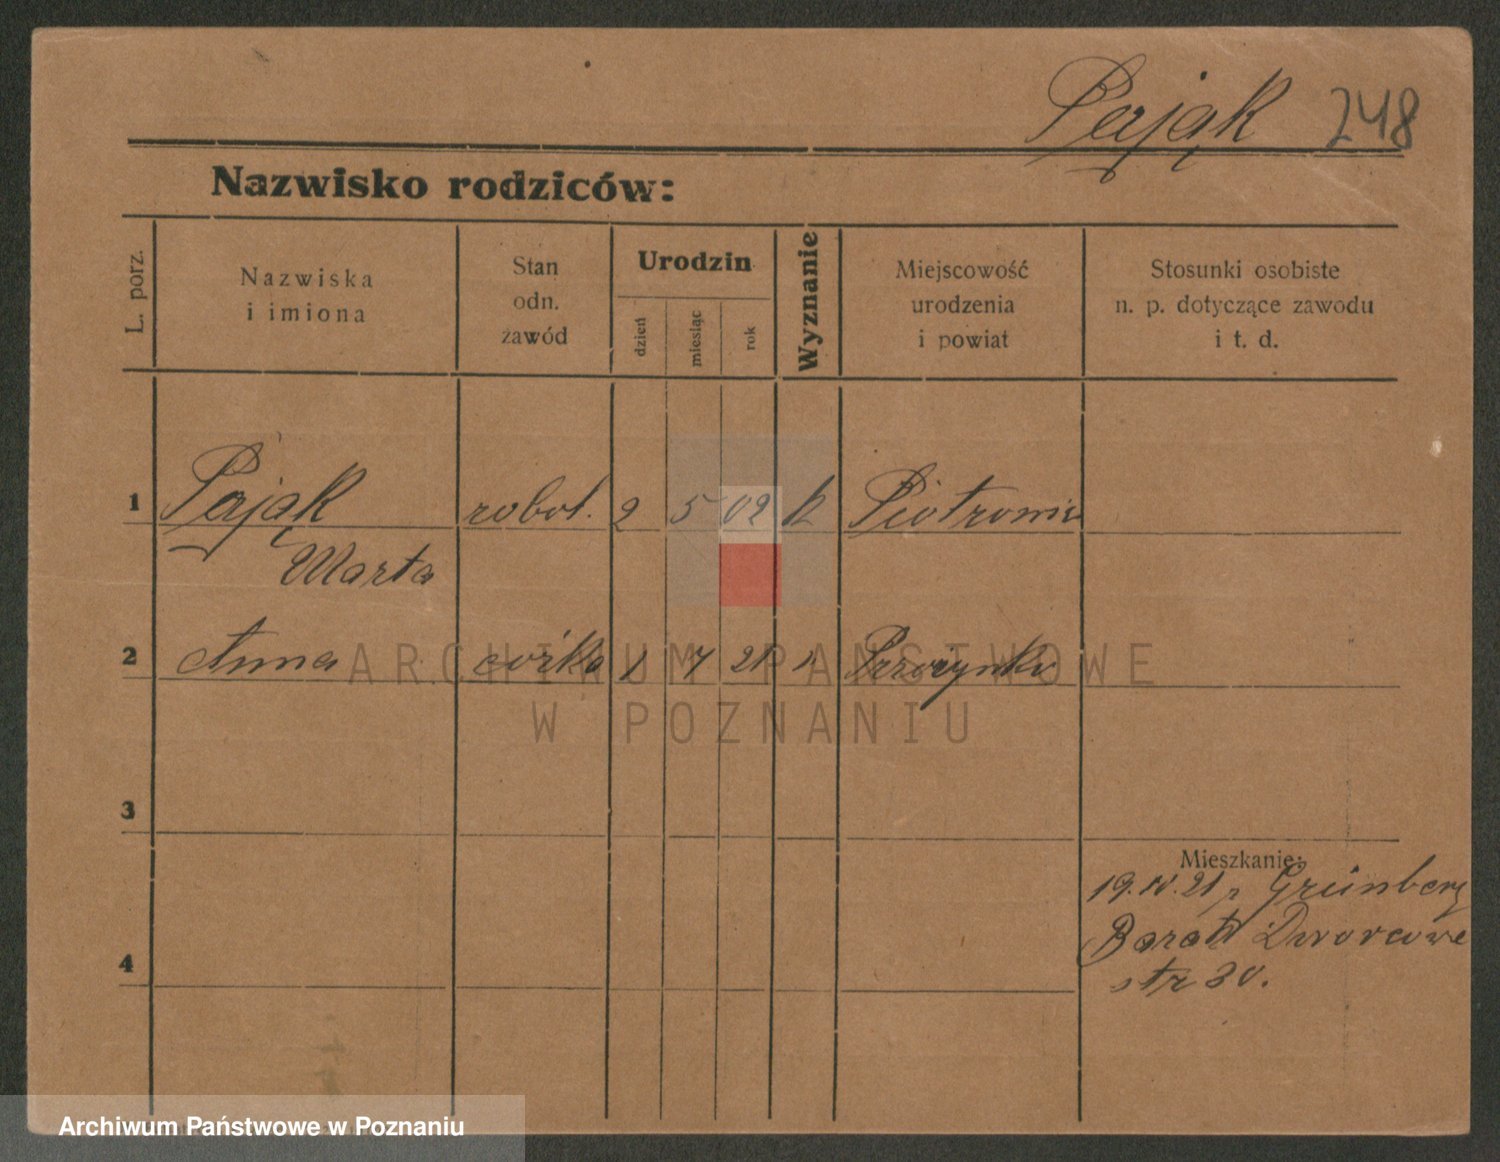 Pająk 248
Nazwisko rodziców:
L. porz.
Nazwiska
i imiona
Stan
odn.
zawód
Urodzin
dzień
miesiąc
rok
Wyznanie
Miejscowość
urodzenia
i powiat
Stosunki osobiste
n. p. dotyczące zawodu
i t. d.
1 Pająk robot. 2 5 02 k Piotrowo
Marta
2 Anna córka 1 4 21 "
ARCHIWUM PAŃSTWOWE
W POZNANIU
3
Mieszkanie:
19.IV.21 Grünberg
Barak Dworcowe
4
str 30.
Archiwum Państwowe w Poznaniu